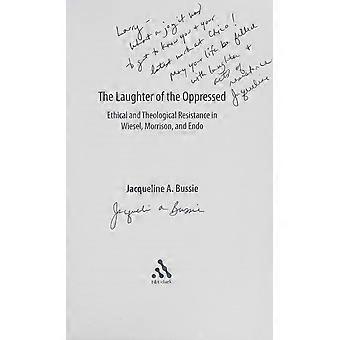 Larry –
What a joy it was
to get to know you & your
latest work at Chico!
May your life be filled
with laughter &
acts of
resistance
Jacqueline
The Laughter of the Oppressed
Ethical and Theological Resistance in
Wiesel, Morrison, and Endo
Jacqueline A. Bussie
Jacqueline A. Bussie
t&t clark